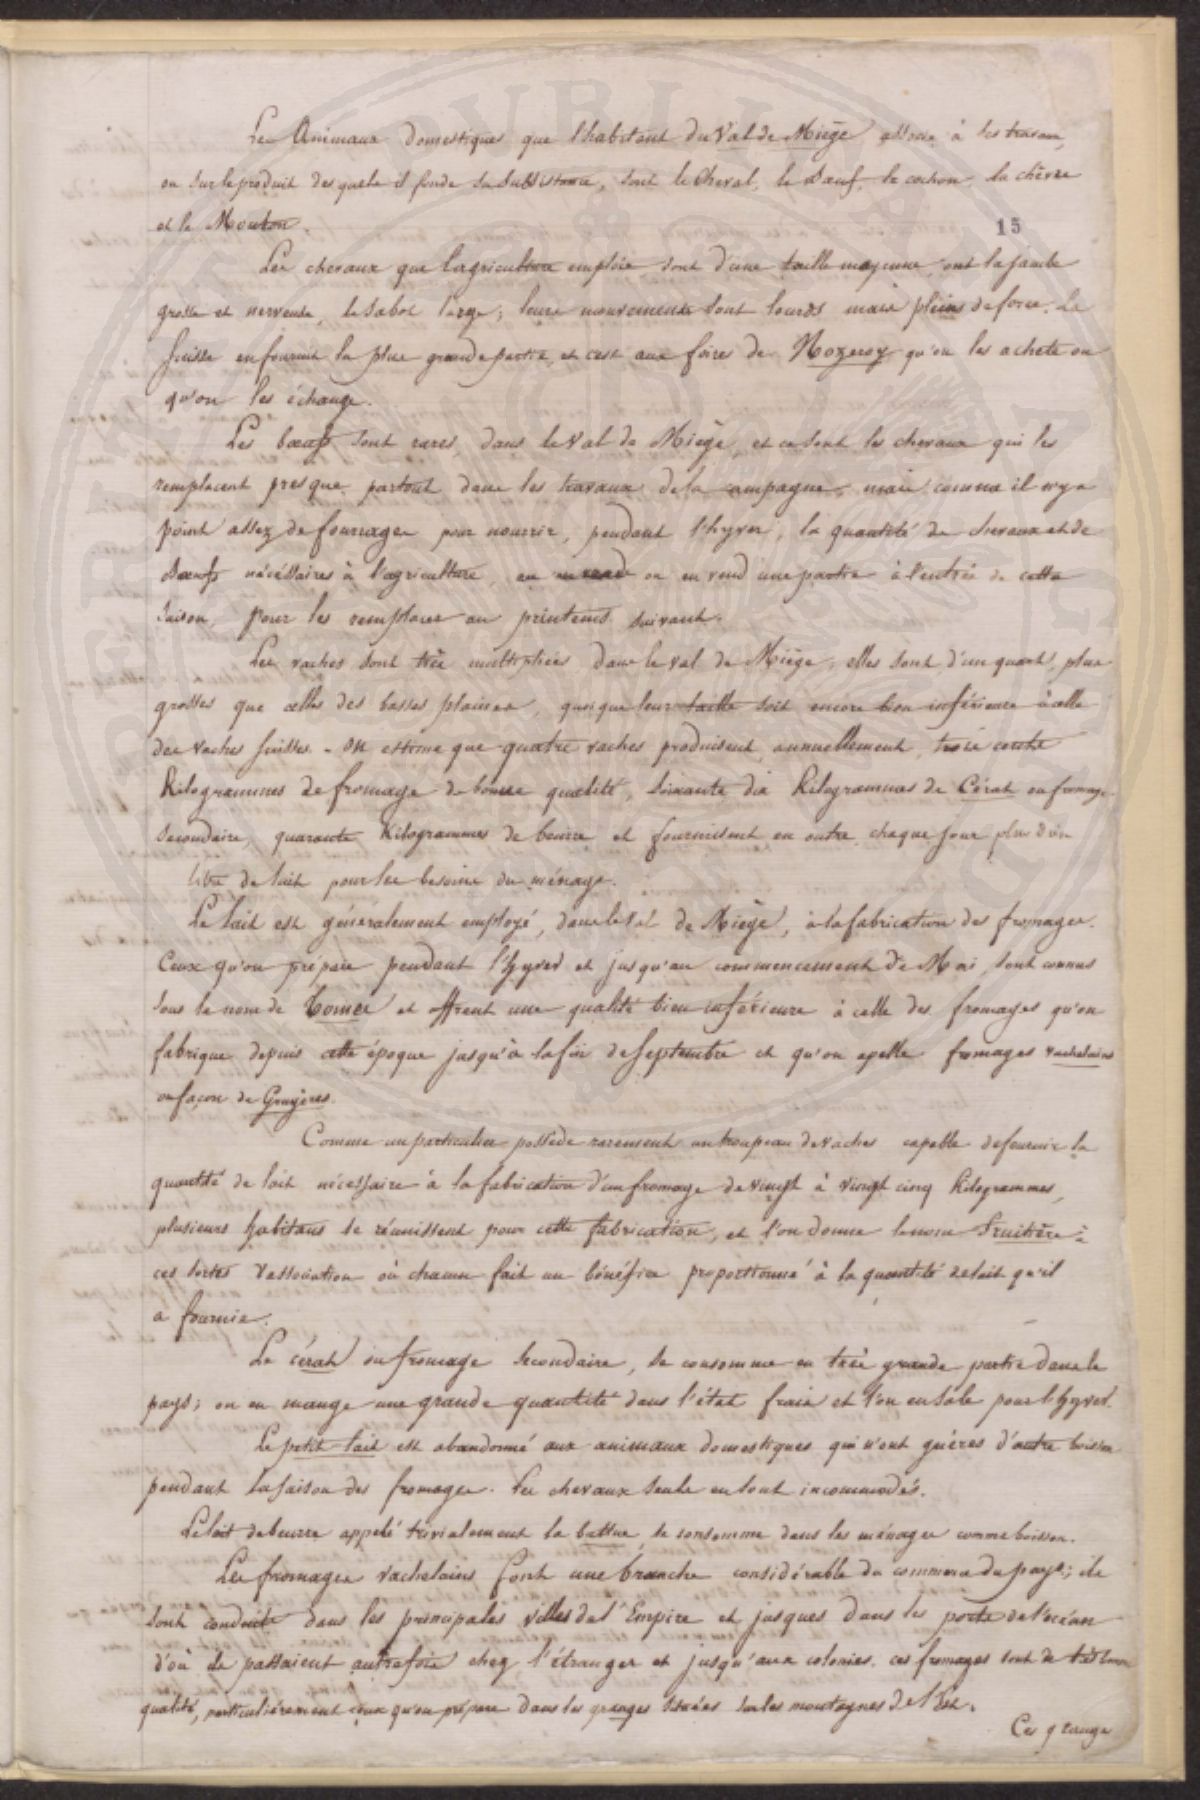 Les Animaux domestiques que l'habitant du Val de Miège associe à ses travaux,
ou sur le produit desquels il fonde sa subsistance, sont le cheval, le Bœuf, le cochon, la chèvre
et le Mouton.
15
Les chevaux que l'agriculture emploie, sont d'une taille moyenne, ont la jambe
grosse et nerveuse, le sabot large; leurs mouvements sont lourds mais pleins de force. La
Suisse en fournit la plus grande partie, et c'est aux foires de Nozeroy qu'on les achete ou
qu'on les échange.
Les bœufs sont rares, dans le Val de Miège, et ce sont les chevaux qui les
remplacent presque partout dans les travaux de la campagne, mais comme il n'y a
point assez de fourrages pour nourrir, pendant l'hyver, la quantité de chevaux et de
Bœufs nécéssaires à l'agriculture, on en vend une partie à l'entrée de cette
saison, pour les remplacer au printems suivant.
Les vaches sont très multipliées dans le val de Miège, elles sont d'un quart plus
grosses que celles des basses plaines, quoique leur taille soit encore bien inférieure à celle
des vaches suisses. On estime que quatre vaches produisent, annuellement, trois cents
Kilogrammes de fromage de bonne qualité, soixante dix Kilogrammes de Cérat ou fromage
secondaire, quarante Kilogrammes de beurre et fournissent en outre, chaque jour plus d'un
litre de lait pour les besoins du ménage.
Le lait est généralement employé, dans le Val de Miège, à la fabrication des fromages.
Ceux qu'on prépare pendant l'hyver et jusqu'au commencement de Mai, sont connus
sous le nom de Tomes et offrent une qualité bien inférieure à celle des fromages qu'on
fabrique depuis cette époque jusqu'à la fin de Septembre et qu'on apelle fromages vachelains
ou façon de Gruyères.
Comme un particulier possède rarement un troupeau de vaches capable de fournir la
quantité de lait nécessaire à la fabrication d'un fromage de vingt à vingt cinq Kilogrammes,
plusieurs habitans se réunissent pour cette fabrication, et l'on donne le nom Fruitière à
ces sortes d'association où chacun fait un bénéfice proportionné à la quantité de lait qu'il
a fournie.
Le cérat ou fromage secondaire, se consomme en très grande partie dans le
pays; on en mange une grande quantité dans l'état frais et l'on en sale pour l'hyver.
Le petit-lait est abandonné aux animaux domestiques qui n'ont guères d'autre boisson
pendant la saison des fromages. Les chevaux seuls en sont incommodés.
Le lait de beurre appelé trivialement la battue se consomme dans les ménages comme boisson.
Les fromages vachelains font une branche considérable du commerce du pays; ils
sont conduits dans les principales villes de l'Empire et jusques dans les ports de l'océan
d'où ils passaient autrefois chez l'étranger et jusqu'aux colonies. ces fromages sont de très bonne
qualité, particulièrement ceux qu'on prépare dans les granges situées sur les montagnes de l'Est.
Ces granges